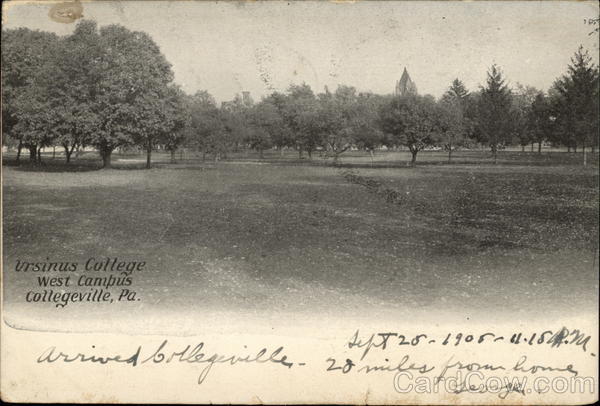 Ursinus College
West Campus
Collegeville, Pa.
Sept 25 - 1905 - 11.15 P.M.
arrived Collegeville - 28 miles from home
CardCow.com